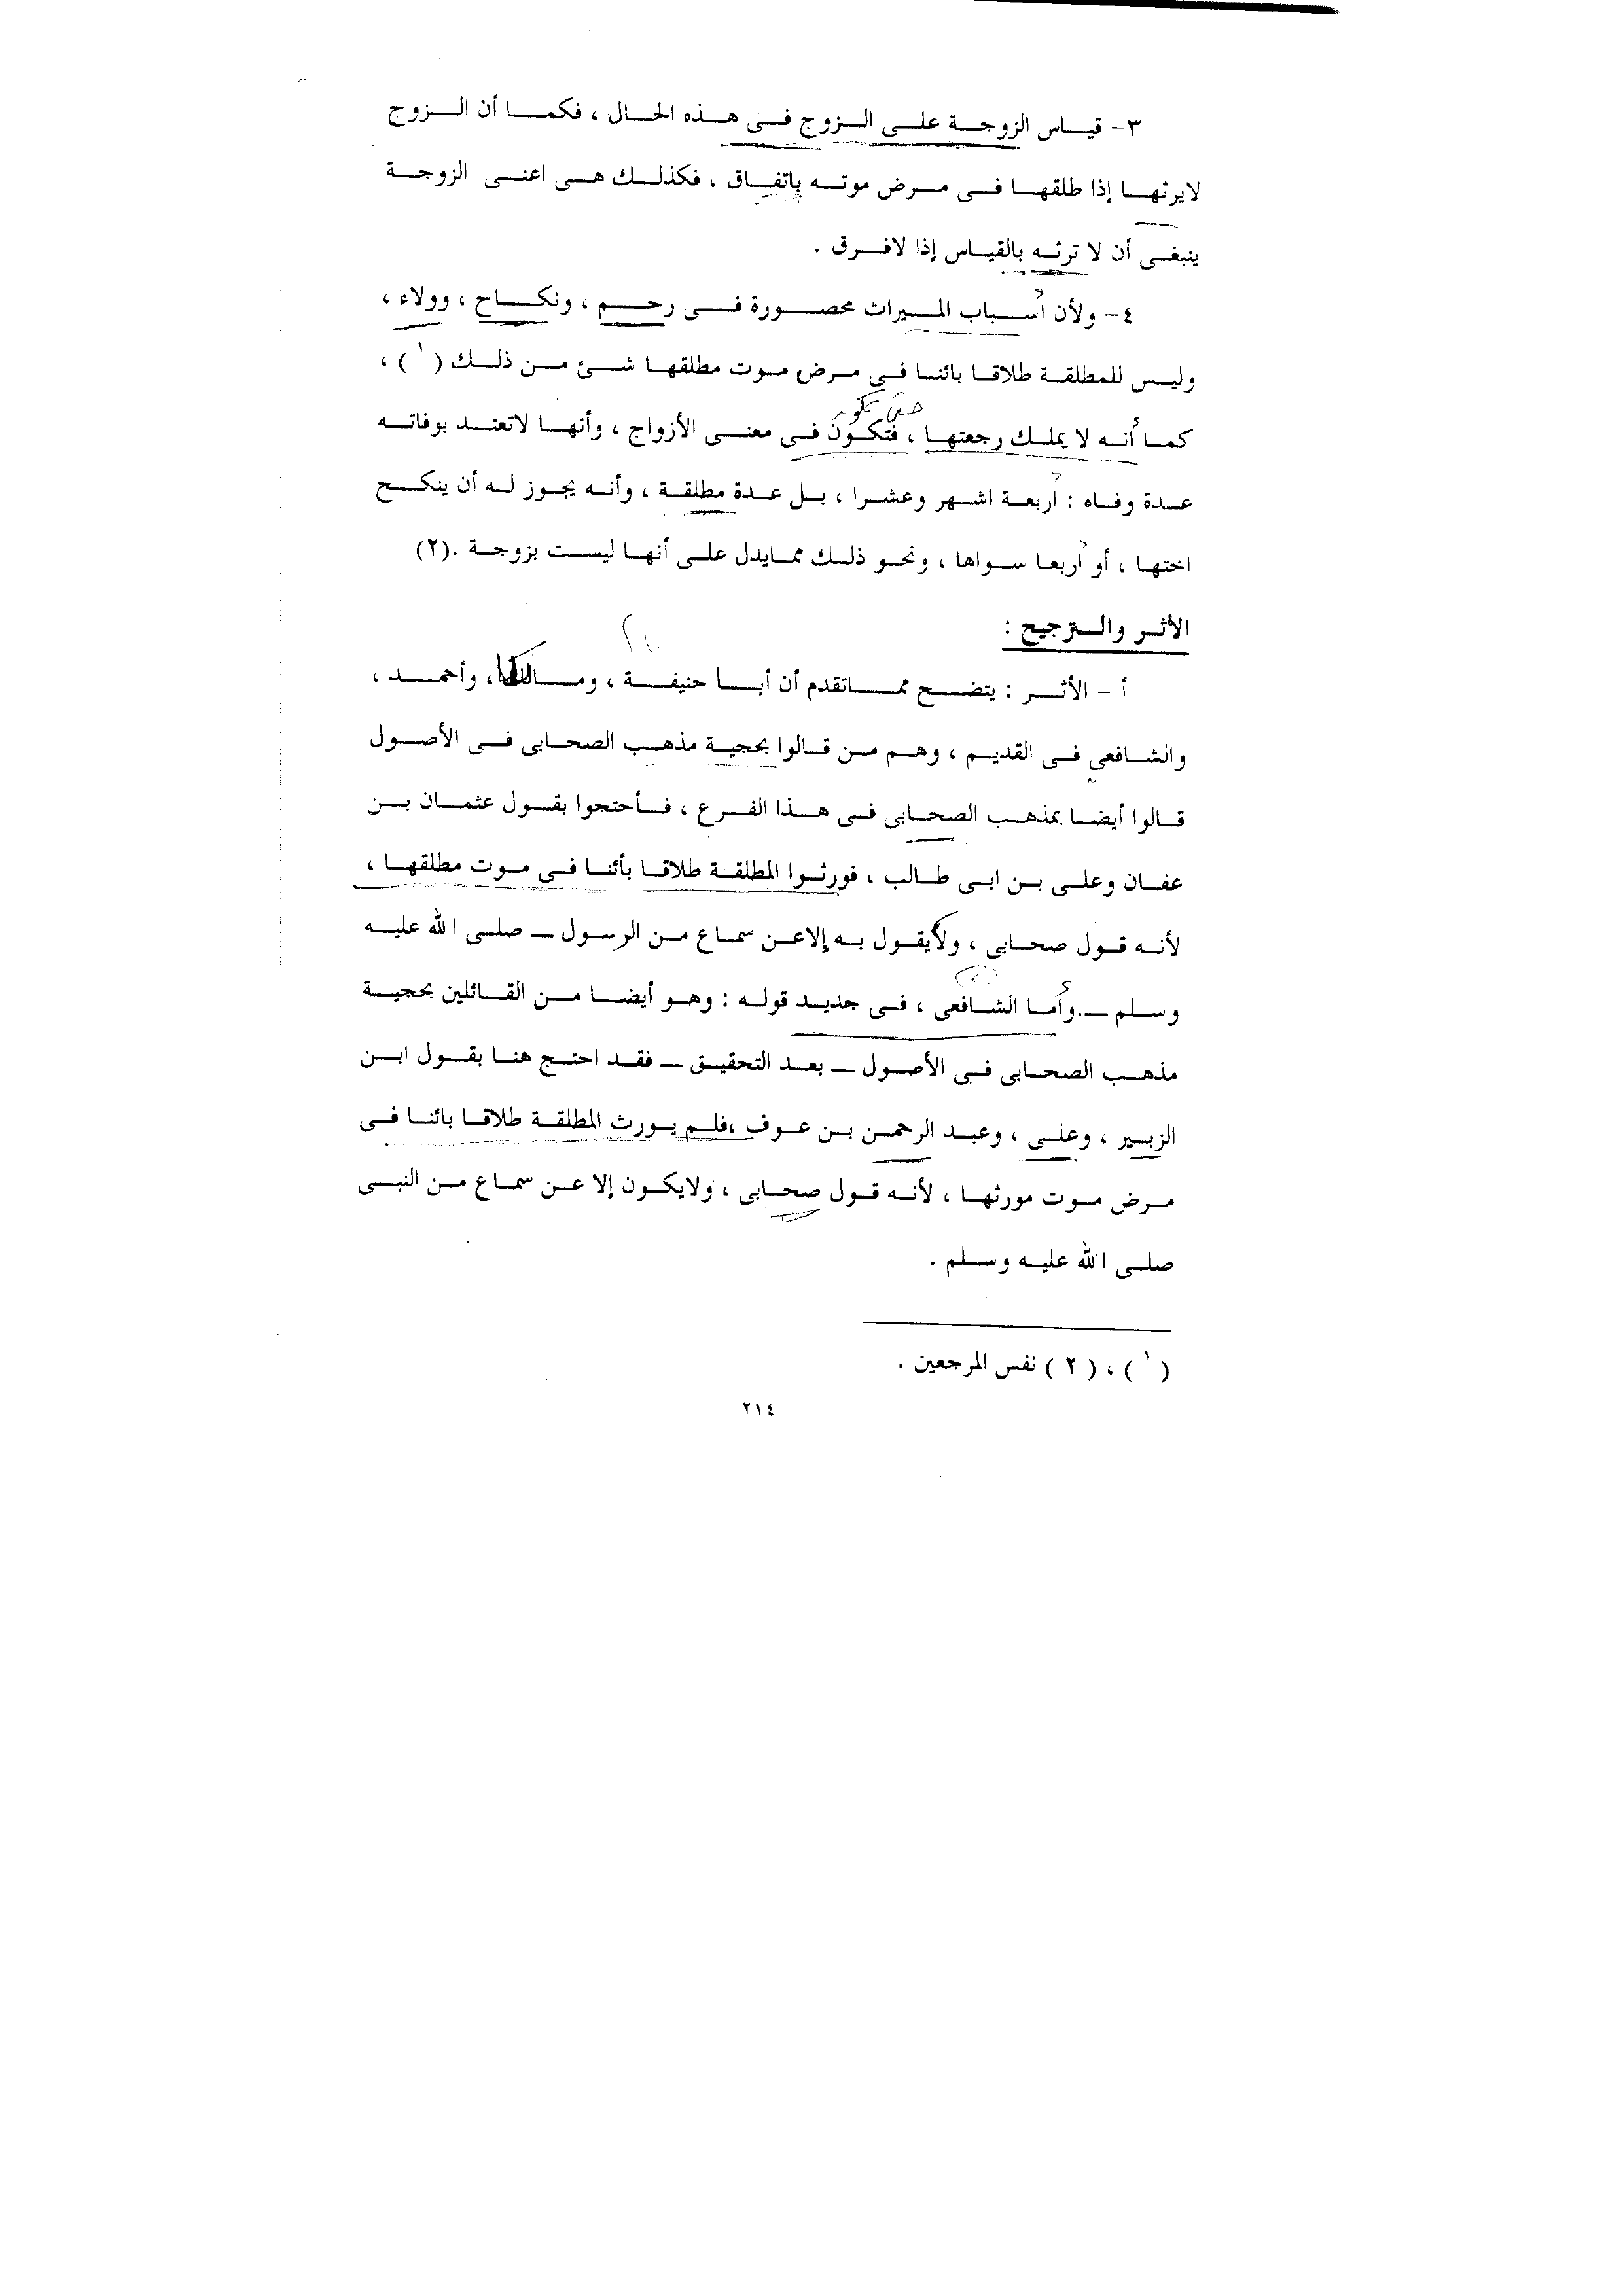 ٣- قياس الزوجة على الزوج فى هذه الحال ، فكما أن الزوج
لايرثها إذا طلقها فى مرض موته باتفاق ، فكذلك هى اعنى الزوجة
ينبغى أن لا ترثه بالقياس إذا لافرق .
٤- ولأن أسباب الميراث محصورة فى رحم ، ونكاح ، وولاء ،
وليس للمطلقة طلاقا بائنا فى مرض موت مطلقها شئ من ذلك ( ١ ) ،
حتى تكون
كما أنه لا يملك رجعتها ، فتكون فى معنى الأزواج ، وأنها لاتعتد بوفاته
عدة وفاه : أربعة اشهر وعشرا ، بل عدة مطلقة ، وأنه يجوز له أن ينكح
اختها ، أو أربعا سواها ، ونحو ذلك ممايدل على أنها ليست بزوجة .(٢)
الأثر والترجيح :
أ - الأثر : يتضح مماتقدم أن أبا حنيفة ، ومالكا ، وأحمد ،
والشافعى فى القديم ، وهم من قالوا بحجية مذهب الصحابى فى الأصول
قالوا أيضا بمذهب الصحابى فى هذا الفرع ، فأحتجوا بقول عثمان بن
عفان وعلى بن ابى طالب ، فورثوا المطلقة طلاقا بأئنا فى موت مطلقها ،
لأنه قول صحابى ، ولايقول به إلاعن سماع من الرسول – صلى الله عليه
وسلم –.وأما الشافعى ، فى جديد قوله : وهو أيضا من القائلين بحجية
مذهب الصحابى فى الأصول – بعد التحقيق – فقد احتج هنا بقول ابن
الزبير ، وعلى ، وعبد الرحمن بن عوف ،فلم يورث المطلقة طلاقا بائنا فى
مرض موت مورثها ، لأنه قول صحابى ، ولايكون إلا عن سماع من النبى
صلى الله عليه وسلم .
( ١ ) ، ( ٢ ) نفس المرجعين .
٢١٤